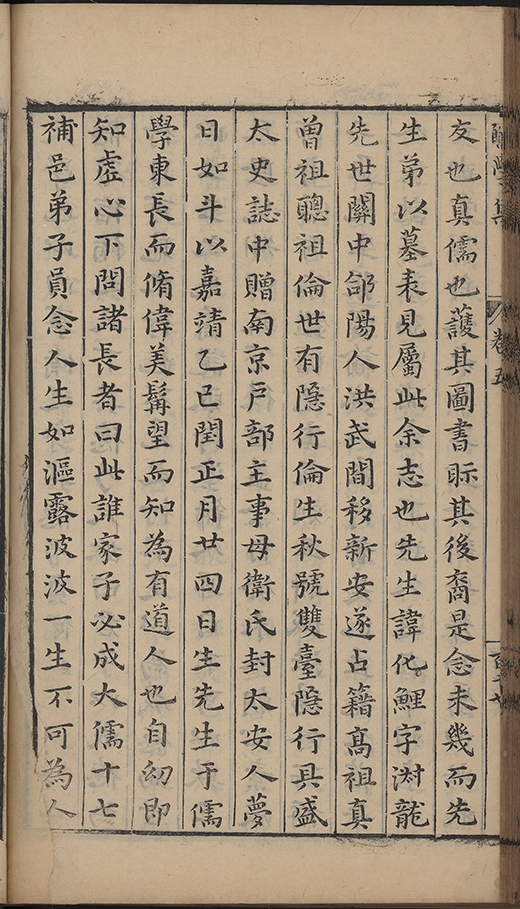 友也真儒也護其圖書眎其後裔是念未幾而先
生弟以墓表見屬此余志也先生諱化鯉字澍龍
先世關中郃陽人洪武間移新安遂占籍髙祖真
曽祖聰祖倫世有隱行倫生秋號雙臺隱行具盛
太史誌中贈南京戸部主事母衛氏封太安人夢
日如斗以嘉靖乙巳閏正月廿四日生先生于儒
學東長而脩偉美髯望而知為有道人也自幼即
知虗心下問諸長者曰此誰家子必成大儒十七
補邑弟子員念人生如漚露波波一生不可為人
集
卷五